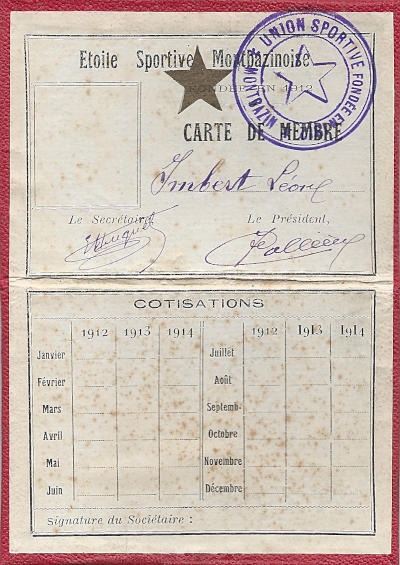 Etoile Sportive Montbazinoise
FONDÉE EN 1912
UNION SPORTIVE FONDÉE EN
CARTE DE MEMBRE
Imbert Léon
Le Secrétaire
Le Président,
COTISATIONS
1912 1913 1914 1912 1913 1914
Janvier Juillet
Février Août
Mars Septemb-
Avril Octobre
Mai Novembre
Juin Décembre
Signature du Sociétaire :